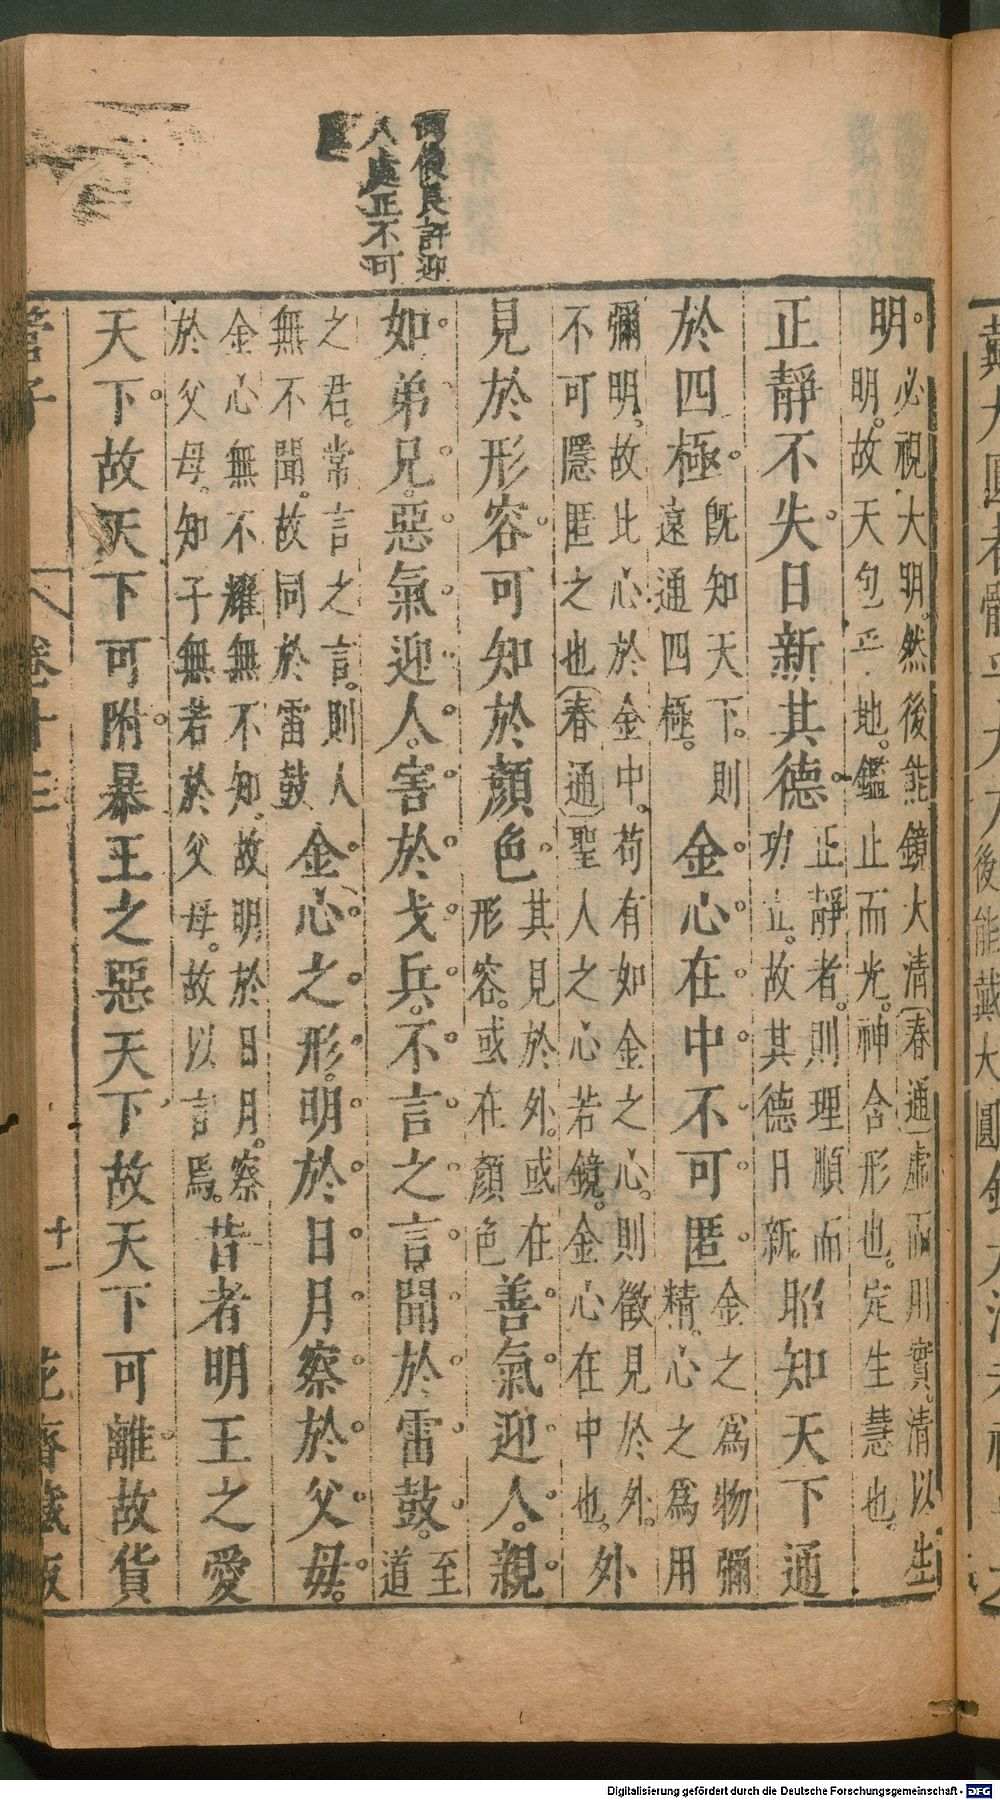 明。必視大明。然後能鏡大清(春通)虛而用實。清以生
明。故天包乎地。鑑止而光。神含形也。定生慧也。
正靜不失。日新其德。正靜者。則理順而
功立。故其德日新。昭知天下通
於四極。既知天下。則
遠通四極。金心在中不可匿。金之爲物彌
精。心之爲用
彌明。故比心於金中。苟有如金之心。則徵見於外。
不可隱匿之也(春通)聖人之心若鏡。金心在中也。外
見於形容。可知於顏色。其見於外。或在
形容。或在顏色善氣迎人。親
如弟兄。惡氣迎人。害於戈兵。不言之言。聞於雷鼓。至
道
之君。常言之言。則人
無不聞。故同於雷鼓金心之形。明於日月察於父母。
金心無不耀無不知。故明於日月。察
於父母。知子無若於父母。故以言焉。昔者明王之愛
天下。故天下可附。暴王之惡天下故天下可離。故貨
管子
卷十三
十一
花齋藏版
人處正不可
Digitalisierung gefördert durch die Deutsche Forschungsgemeinschaft - DFG